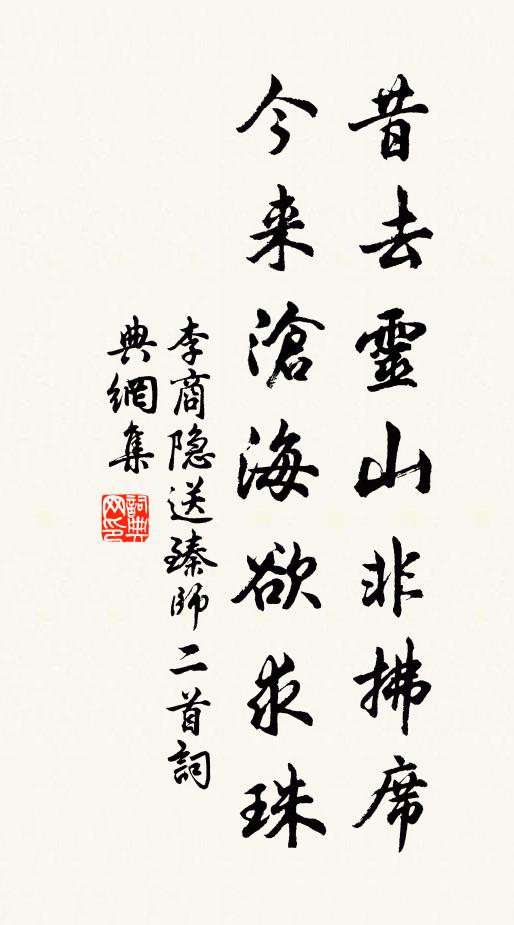 昔去靈山非拂席
今来滄海欲求珠
李商隐送臻師二首詞
典網集
詞典網印